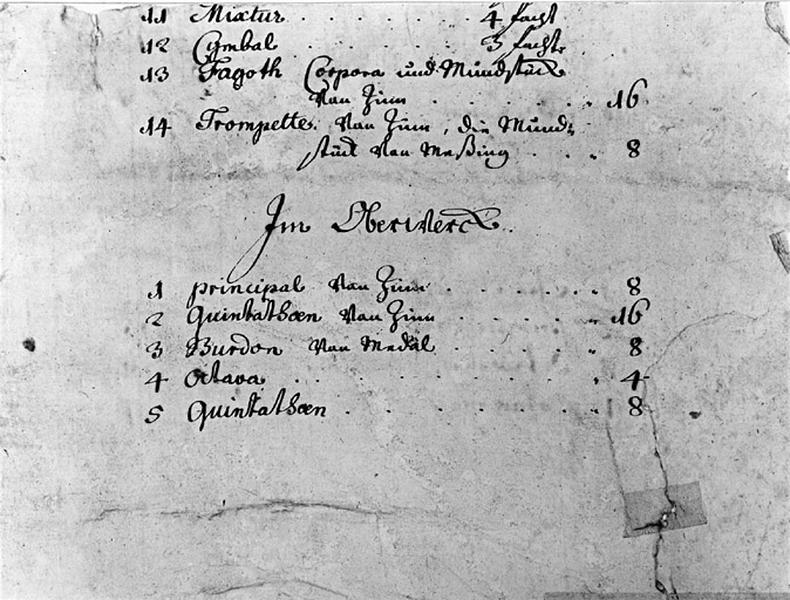 11 Mixtur . . . . . . 4 facht
12 Cymbal . . . . . . 3 facht
13 Fagoth Corpora und Mundstück
Von Zinn . . . . . „ 16
14 Trompette. Von Zinn, die Mund=
stück Von Meßing . . „ 8
Im Oberwerck.
1 principal Von Zinn . . . . . „ 8
2 Quintathoen Von Zinn . . . . „ 16
3 Burdon Von Medal . . . . . „ 8
4 Octava . . . . . . . . . „ 4
5 Quintathoen . . . . . . . „ 8